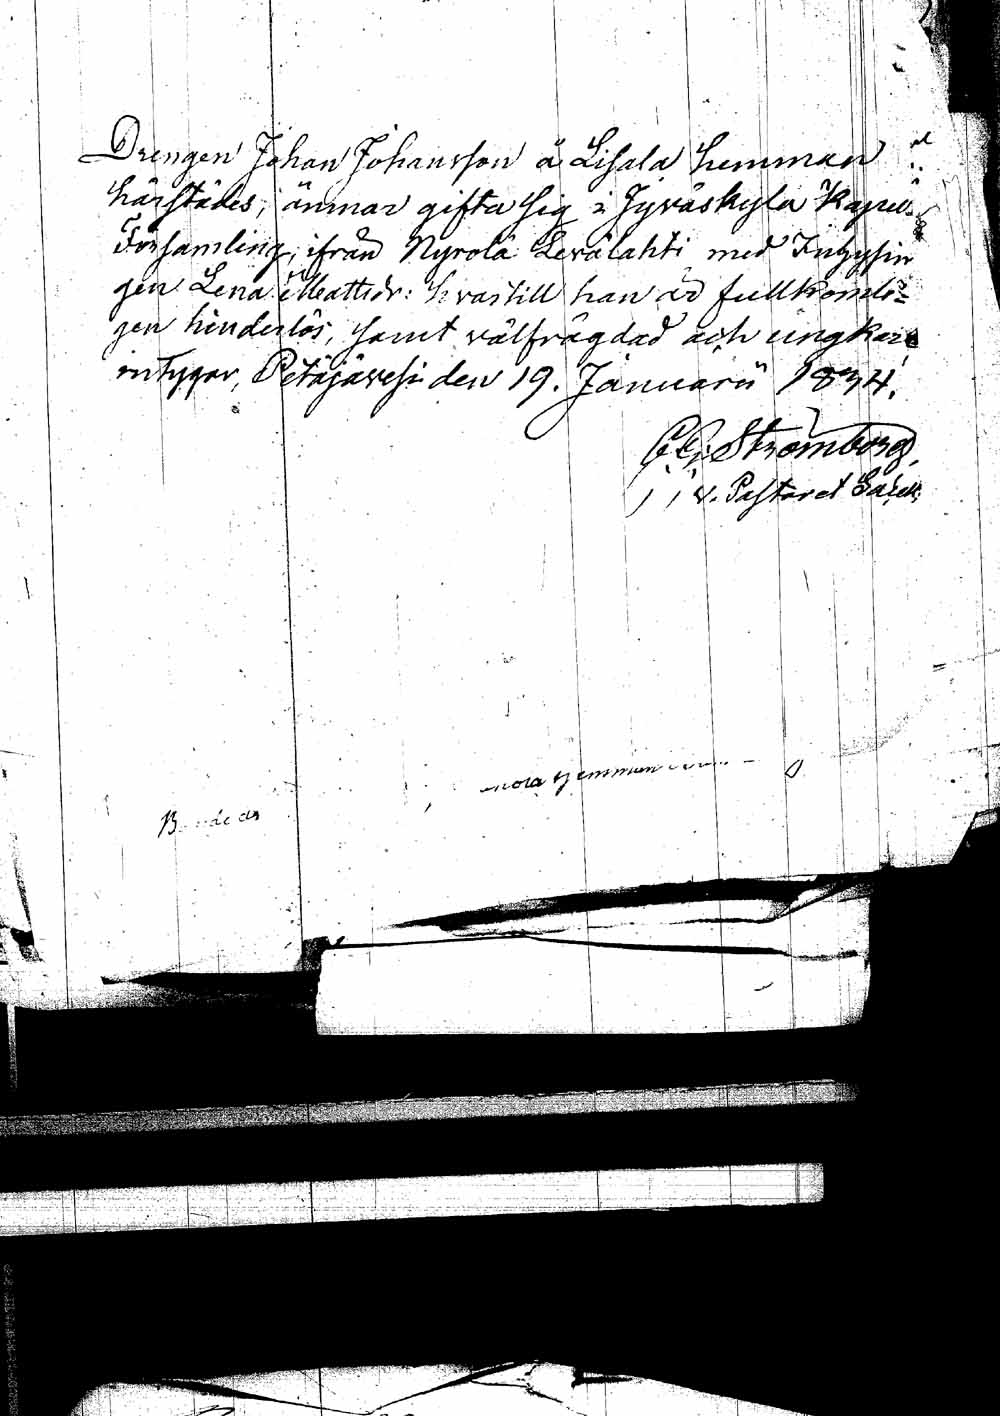 Drengen Johan Johansson å Lisala hemman
härstädes, ämnar gifta sig i Jyväskylä Kapell
Församling, ifrån Nyrölä Leválahti med Inhysin
gen Lena Mattsdr: hvartill han är fullkomli=
gen hinderlös, samt välfrägdad och ungkarl
intygar, Petäjävesi den 19. Januarii 1834.
Strömborg,
v. Pastoret
hemman